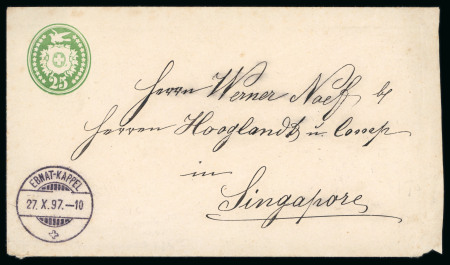 25
Herrn Werner Naeff bei
Herren Hooglandt u. Comp
in
Singapore
EBNAT-KAPPEL
27. X. 97.—10